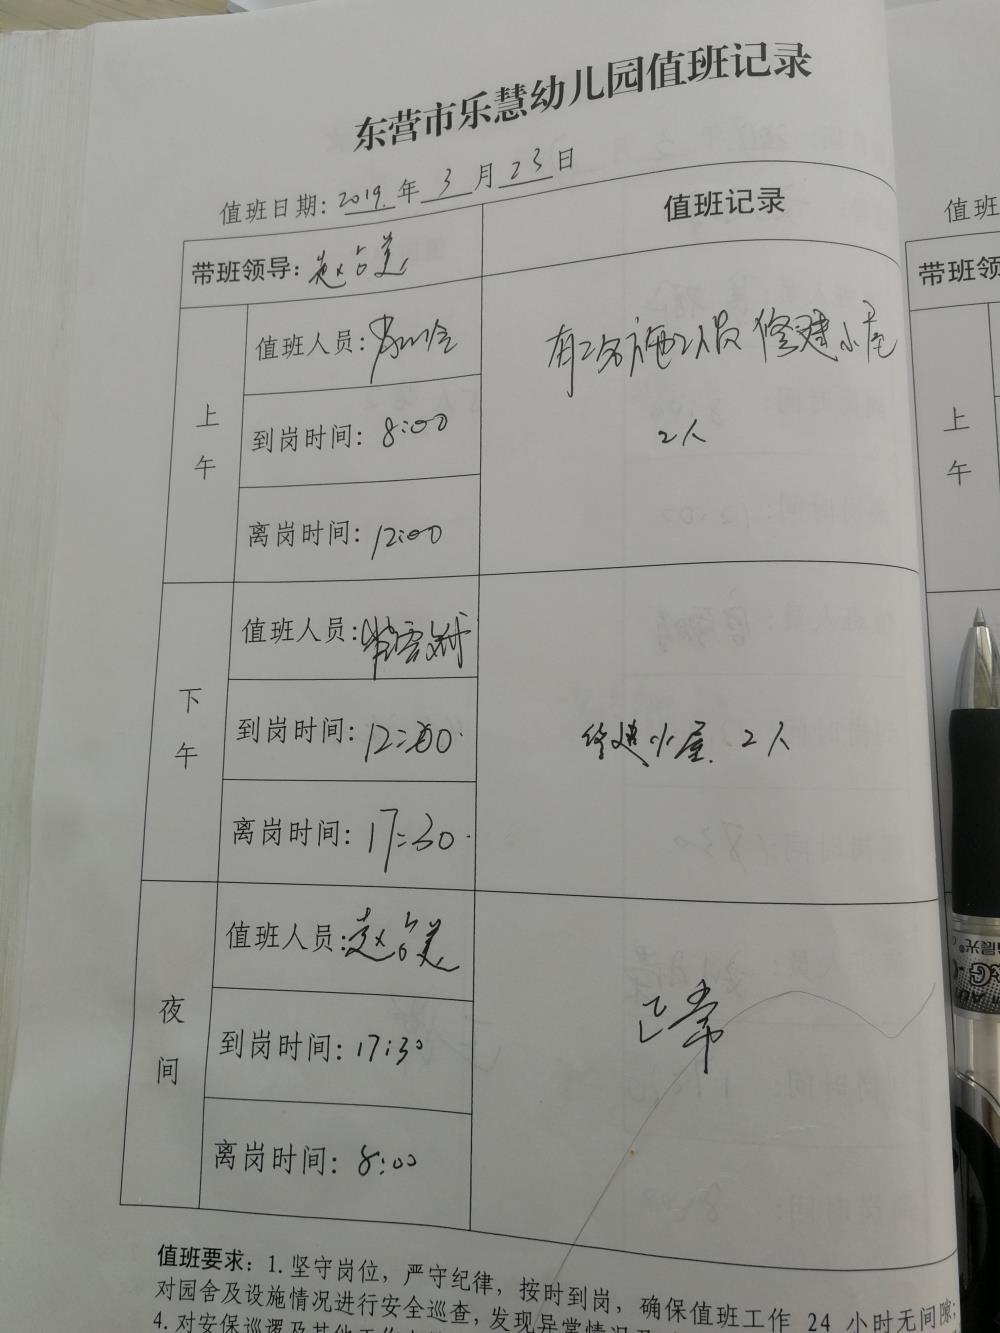 东营市乐慧幼儿园值班记录
值班日期: 2019.年 3 月 23 日
值班
带班领导: 赵占美
值班记录
带班领
上午
值班人员:
有2名施工人员修建小屋
2人
到岗时间: 8:00
离岗时间: 12:00
上午
下午
值班人员:
到岗时间: 12:00
修建小屋. 2人
离岗时间: 17:30
夜间
值班人员: 赵占美
正常
到岗时间: 17:30
离岗时间: 8:00
晨光
值班要求: 1. 坚守岗位，严守纪律，按时到岗，确保值班工作 24 小时无间隙;
对园舍及设施情况进行安全巡查，发现异常情况及
4. 对安保巡逻及其他工作